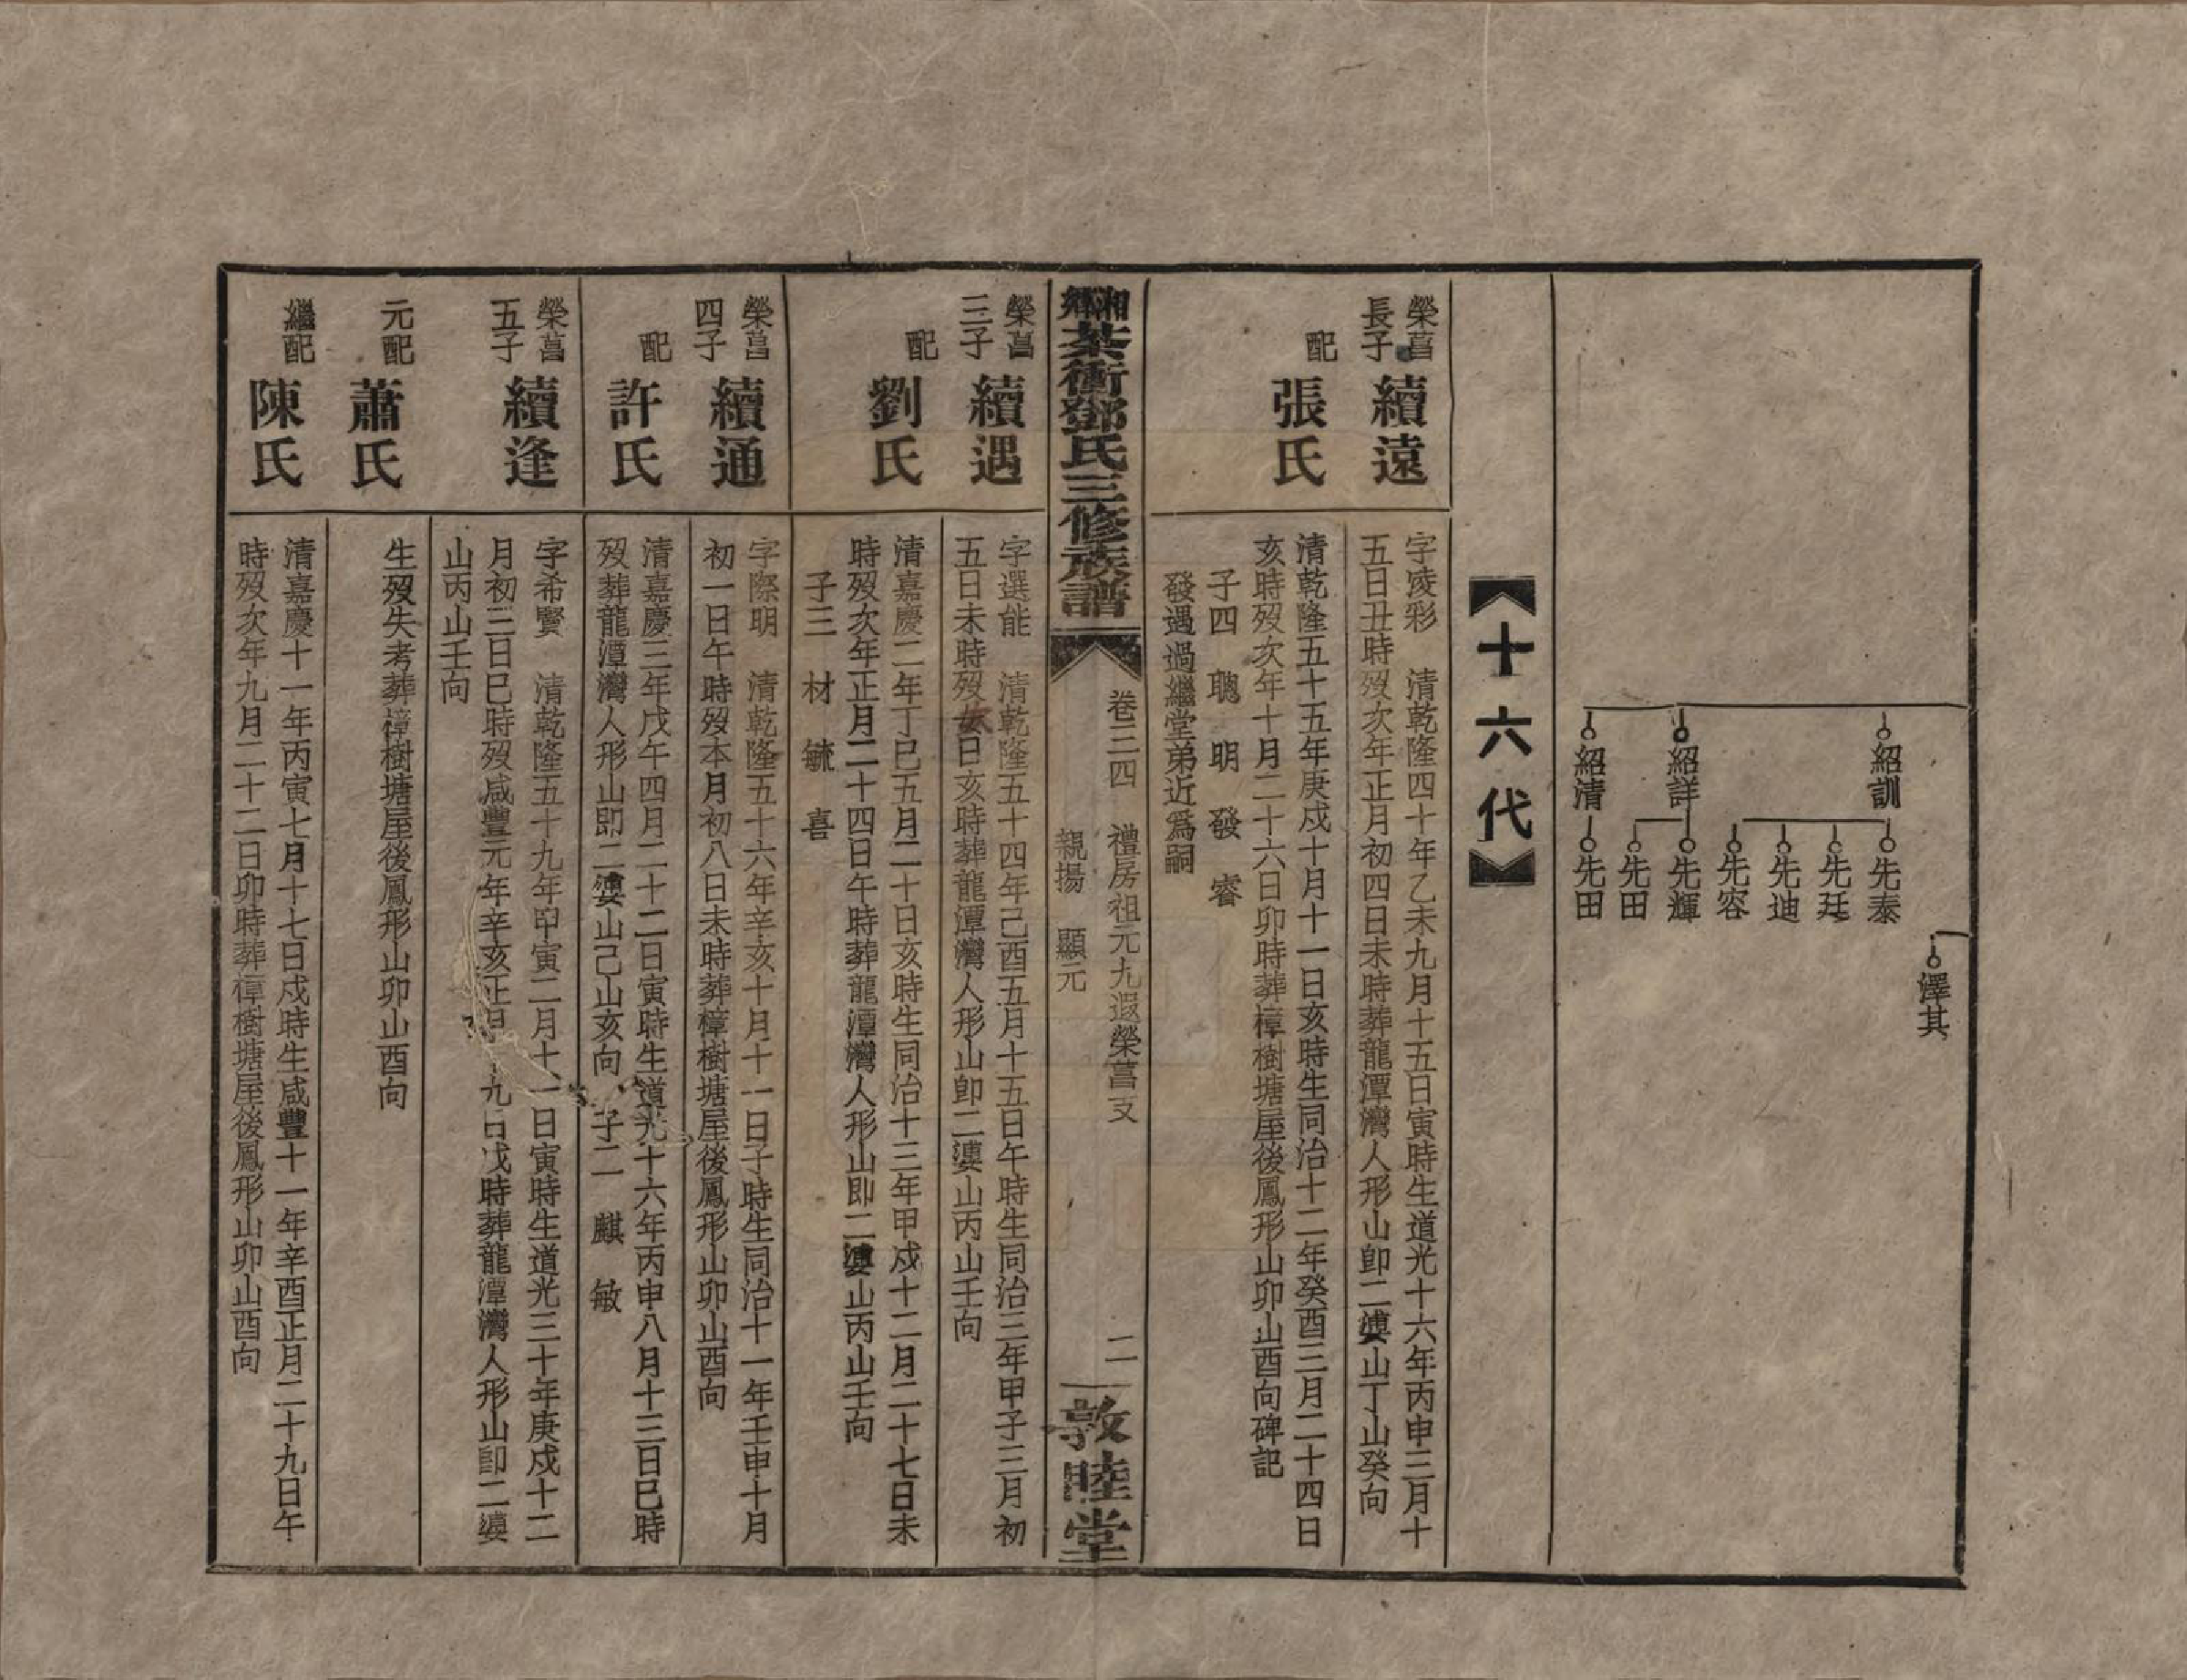 澤其
紹訓
先泰
先廷
先迪
先容
紹詳
先輝
先田
紹清
先田
十六代
榮菖
長子
續遠
字凌彩 清乾隆四十年乙未九月十五日寅時生道光十六年丙申三月十
五日丑時歿次年正月初四日未時葬龍潭灣人形山卽二婆山丁山癸向
配
張氏
清乾隆五十五年庚戍十月十一日亥時生同治十二年癸酉三月二十四日
亥時歿次年十月二十六日卯時葬樟樹塘屋後鳳形山卯山酉向碑記
子四 聰 明 發 睿
發遇過繼堂弟近爲嗣
湘鄉茶衝鄧氏三修族譜
卷三四 禮房祖元九遐榮菖支
親揚 顯元
二
敦睦堂
榮菖
三子
續遇
字選能 清乾隆五十四年己酉五月十五日午時生同治三年甲子三月初
五日未時歿次日亥時葬龍潭灣人形山卽二婆山丙山壬向
配
劉氏
清嘉慶二年丁巳五月二十日亥時生同治十三年甲戍十二月二十七日未
時歿次年正月二十四日午時葬龍潭灣人形山卽二婆山丙山壬向
子三 材 毓 喜
榮菖
四子
續通
字際明 清乾隆五十六年辛亥十月十一日子時生同治十一年壬申十月
初一日午時歿本月初八日未時葬樟樹塘屋後鳳形山卯山酉向
配
許氏
清嘉慶三年戊午四月二十二日寅時生道光十六年丙申八月十三日巳時
歿葬龍潭灣人形山卽二婆山己山亥向 子二 麒 敏
榮菖
五子
續逢
字希賢 清乾隆五十九年甲寅二月十一日寅時生道光三十年庚戍十二
月初三日巳時歿咸豐元年辛亥正月 九日戊時葬龍潭灣人形山卽二婆
山丙山壬向
元配
蕭氏
生歿失考葬樟樹塘屋後鳳形山卯山酉向
繼配
陳氏
清嘉慶十一年丙寅七月十七日戍時生咸豐十一年辛酉正月二十九日午
時歿次年九月二十二日卯時葬樟樹塘屋後鳳形山卯山酉向